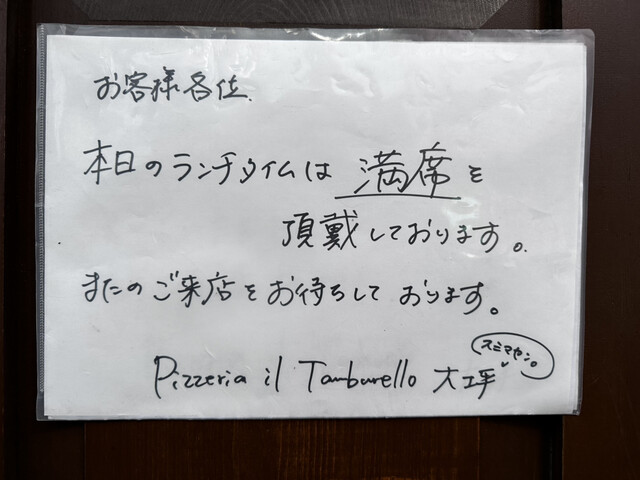 お客様各位.
本日のランチタイムは 満席を
頂戴しております。
またのご来店をお待ちして おります。
スミマセン。
Pizzeria il Tamburello 大坪